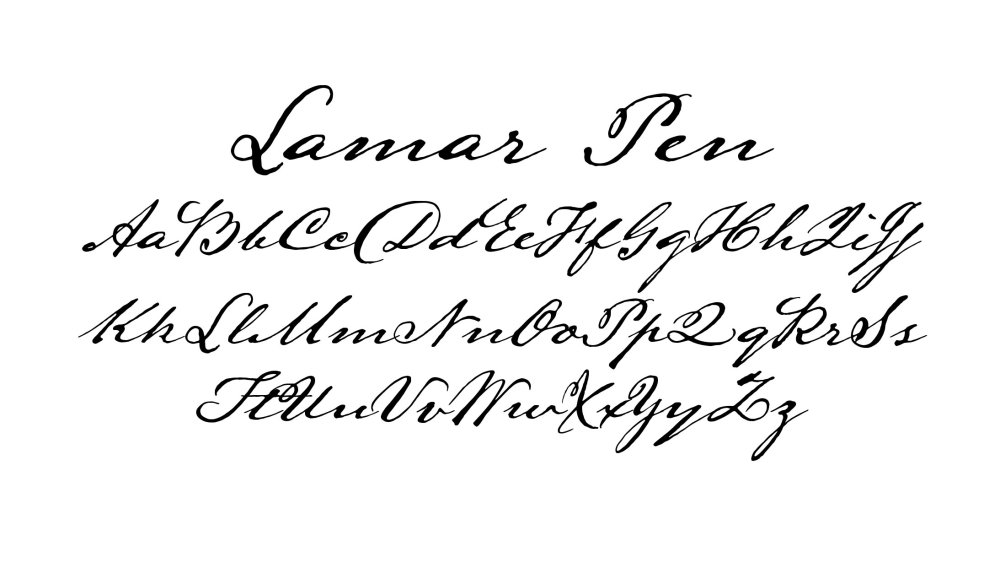 Lamar Pen
AaBbCcDdEeFfGgHhIiJj
KkLlMmNnOoPpQqRrSs
TtUuVvWwXxYyZz